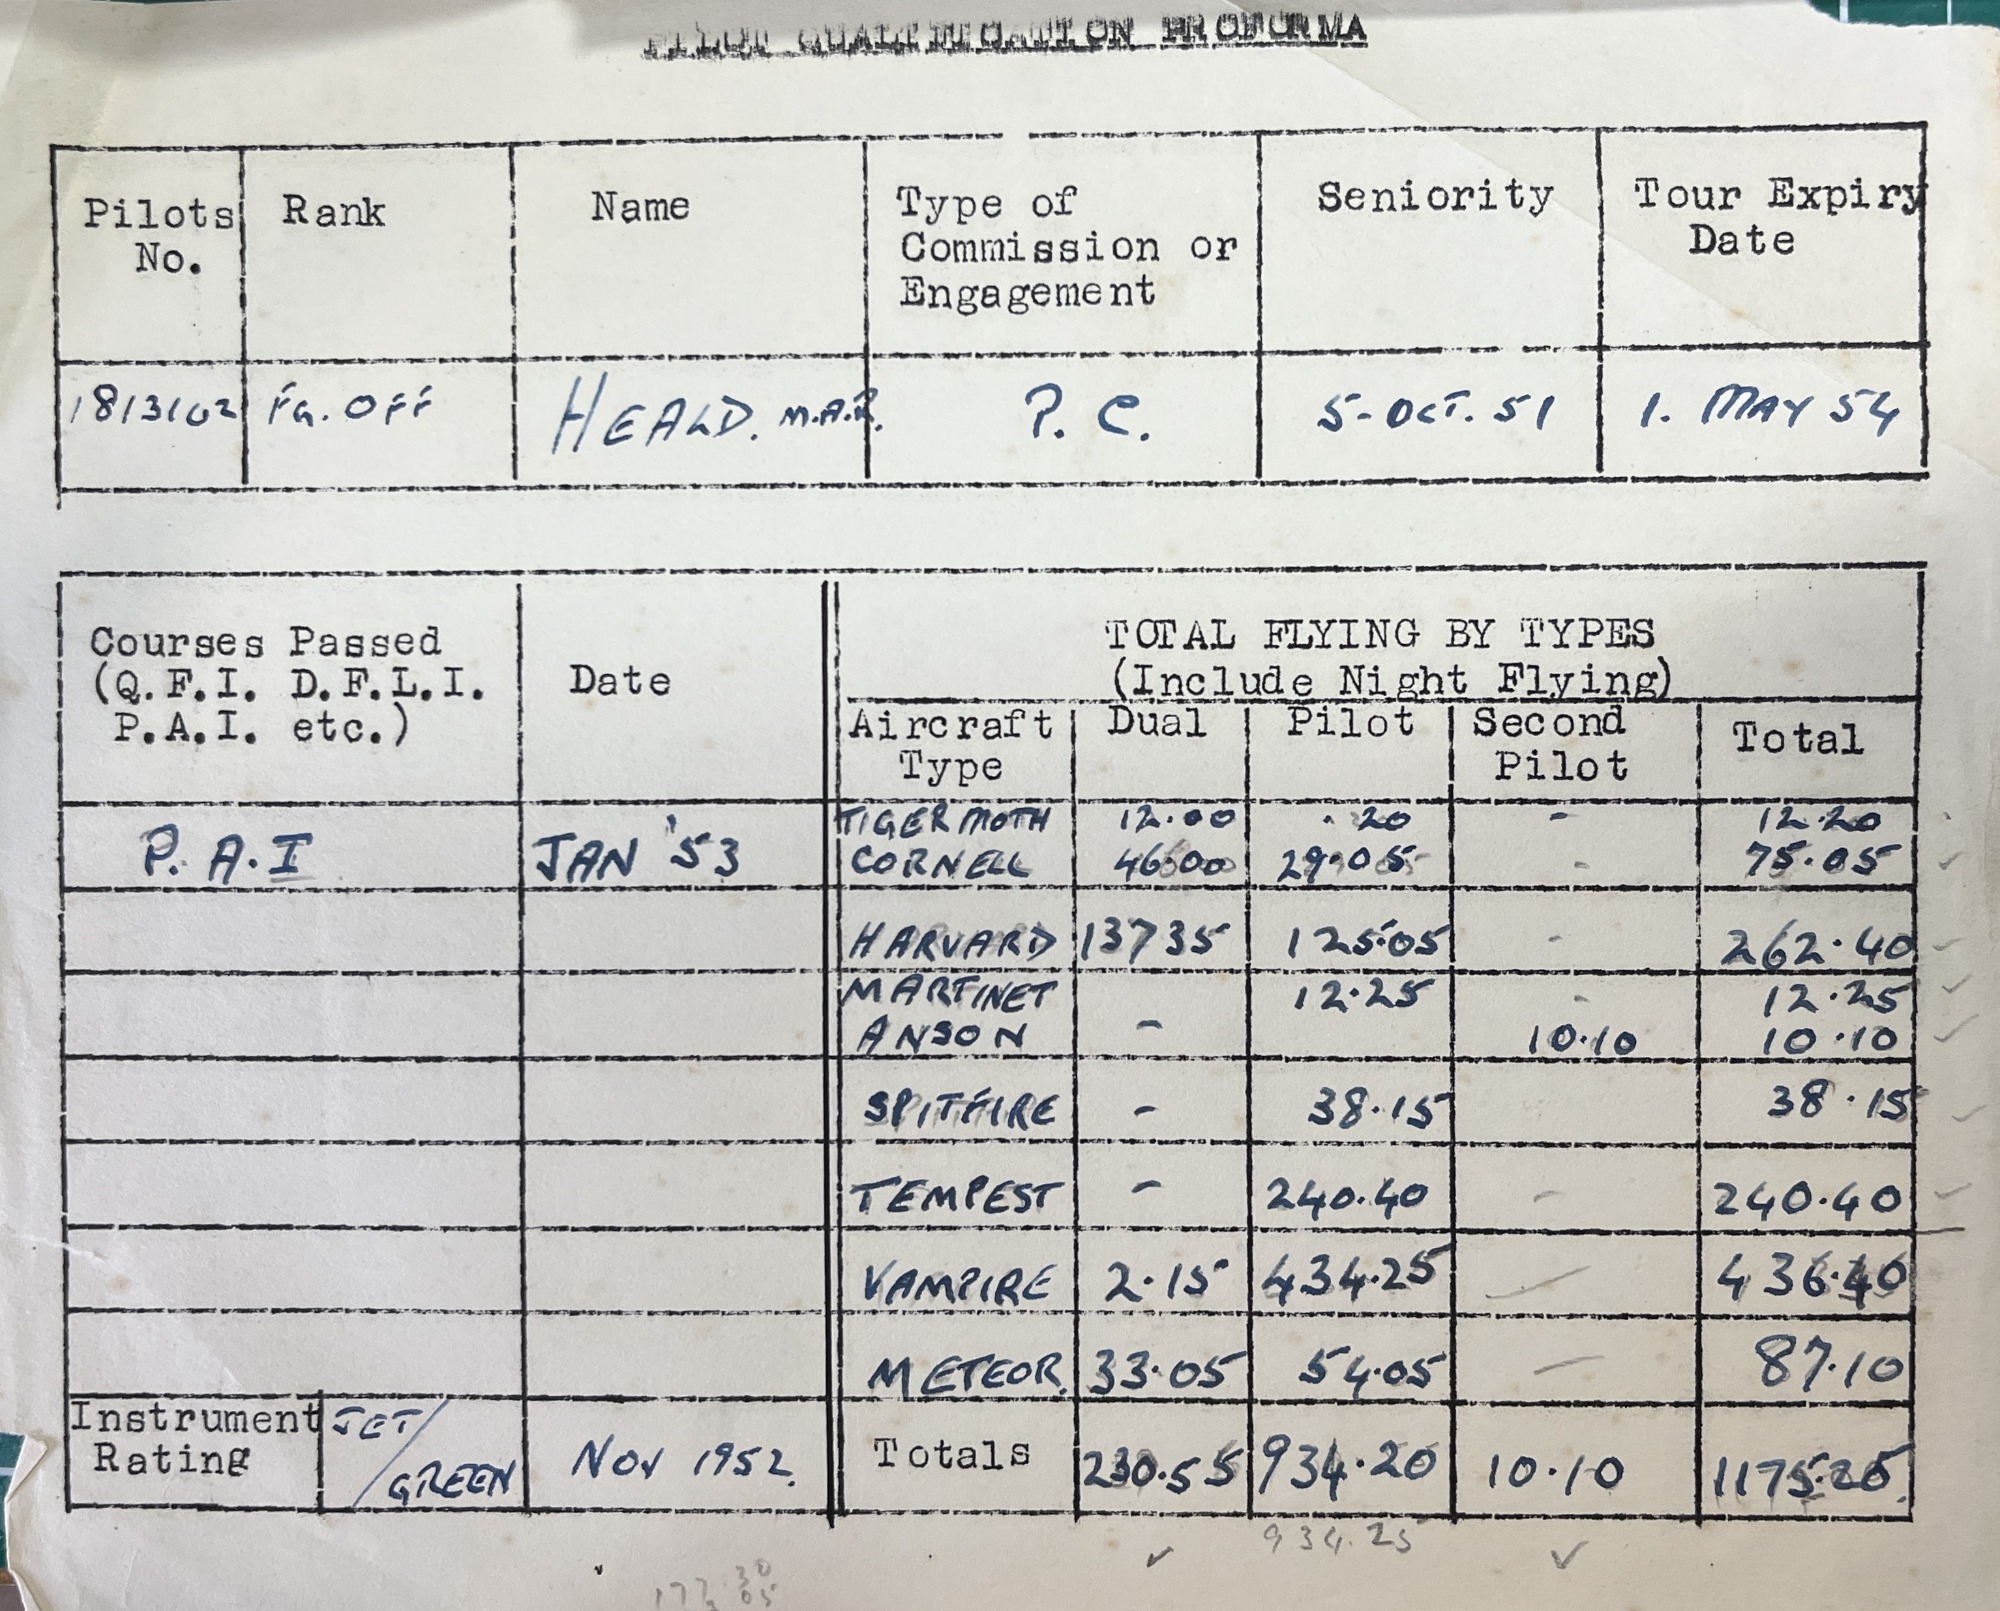 PILOT QUALIFICATION PROFORMA
Pilots No. Rank Name Type of Commission or Engagement Seniority Tour Expiry Date
1813102 FG. OFF HEALD. M.A.R. P. C. 5-OCT. 51 1. MAY 54
Courses Passed (Q.F.I. D.F.L.I. P.A.I. etc.) Date
TOTAL FLYING BY TYPES
(Include Night Flying)
Aircraft Type Dual Pilot Second Pilot Total
P. A. I JAN '53
TIGER MOTH 12.00 . 20 - 12.20
CORNELL 46.00 29.05 - 75.05
HARVARD 137 35 125.05 - 262.40
MARTINET 12.25 - 12.25
ANSON - 10.10 10.10
SPITFIRE - 38.15 38.15
TEMPEST - 240.40 - 240.40
VAMPIRE 2.15 434.25 - 436.40
METEOR. 33.05 54.05 - 87.10
Instrument Rating JET/GREEN NOV 1952.
Totals 230.55 934.20 10.10 1175.25
934.25